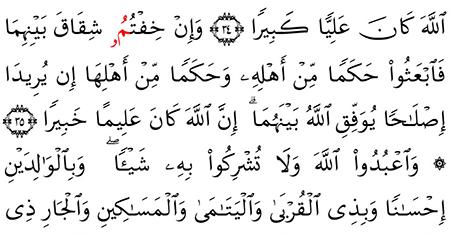 ٱللَّهَ كَانَ عَلِيًّا كَبِيرًا ﴿٣٤﴾ وَإِنْ خِفْتُمُۥ شِقَاقَ بَيْنِهِمَا
فَٱبْعَثُوا۟ حَكَمًا مِّنْ أَهْلِهِۦ وَحَكَمًا مِّنْ أَهْلِهَا إِن يُرِيدَا
إِصْلَـٰحًا يُوَفِّقِ ٱللَّهُ بَيْنَهُمَا ۗ إِنَّ ٱللَّهَ كَانَ عَلِيمًا خَبِيرًا ﴿٣٥﴾
۞ وَٱعْبُدُوا۟ ٱللَّهَ وَلَا تُشْرِكُوا۟ بِهِۦ شَيْـًٔا ۖ وَبِٱلْوَٰلِدَيْنِ
إِحْسَـٰنًا وَبِذِى ٱلْقُرْبَىٰ وَٱلْيَتَـٰمَىٰ وَٱلْمَسَـٰكِينِ وَٱلْجَارِ ذِى